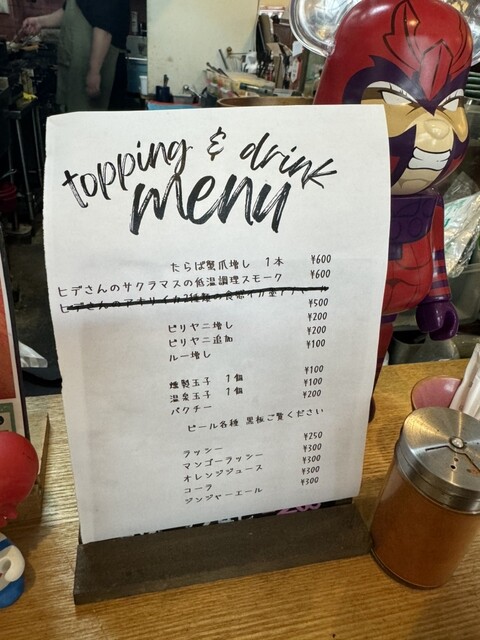 topping & drink
menu
たらば蟹爪増し 1本 ¥600
ヒデさんのサクラマスの低温調理スモーク ¥600
¥500
ビリヤニ増し ¥200
ビリヤニ追加 ¥200
ルー増し ¥100
燻製玉子 1個 ¥100
温泉玉子 1個 ¥100
パクチー ¥200
ビール各種 黒板ご覧ください
ラッシー ¥250
マンゴーラッシー ¥300
オレンジジュース ¥300
コーラ ¥300
ジンジャーエール ¥300